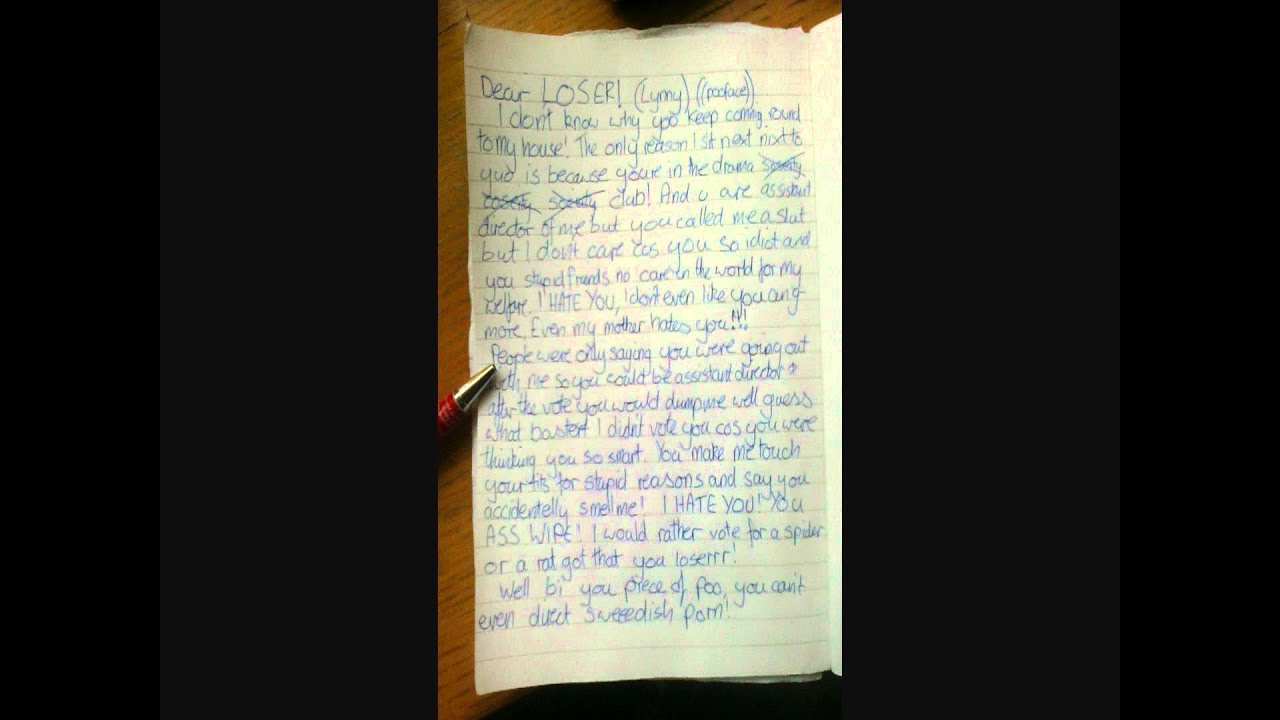 Dear LOSER! (Lymy) ((pooface))
I don't know why you keep coming round
to my house! The only reason I sit next nixt to
yuo is because youre in the drama
club! And u are assistant
director of me but you called me a slut
but I don't care cos you so idiot and
you stupid friends no care in the world for my
welfare. I HATE YOU, I dont even like you any-
more. Even my mother hates you!!!
People were only saying you were going out
with me so you could be assistant director &
after the vote you would dump me well guess
what bastert I didn't vote you cos you were
thinking you so smart. You make me touch
your tits for stupid reasons and say you
accidentelly smell me! I HATE YOU! YOU
ASS WIPE! I would rather vote for a spider
or a rat got that you loserrr!
Well bi you piece of Poo, you can't
even direct sweeedish porn!